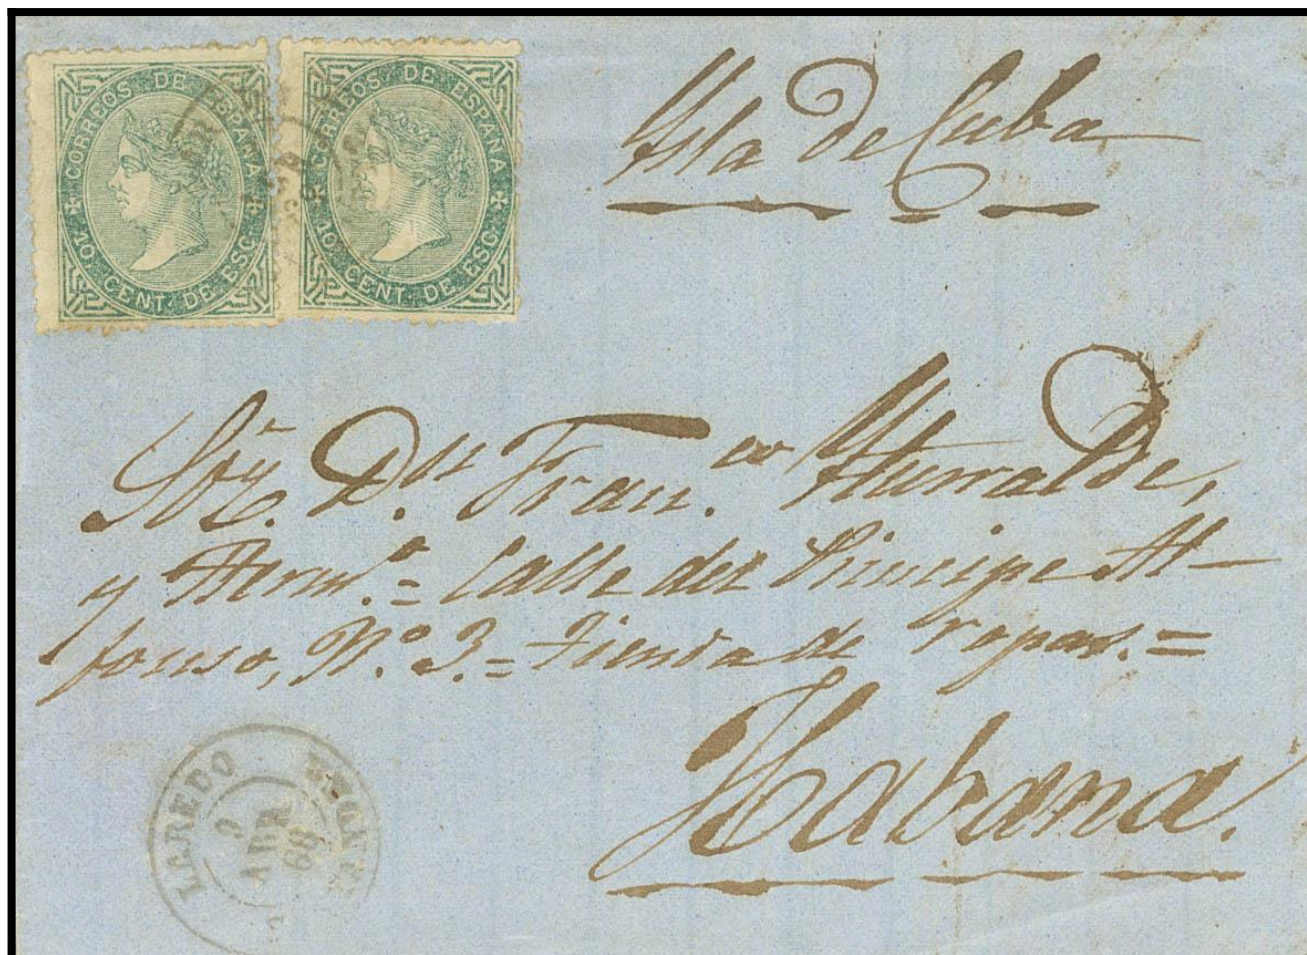 CORREOS DE ESPAÑA
10 CENT. DE ESC.
CORREOS DE ESPAÑA
10 CENT. DE ESC.
Ysla de Cuba
Sr. Dn. Franco. Yturralde,
y Hermo. = Calle del Principe Al-
fonso, No. 3. = Tienda de ropas. =
Habana.
LAREDO
9
ABR
68